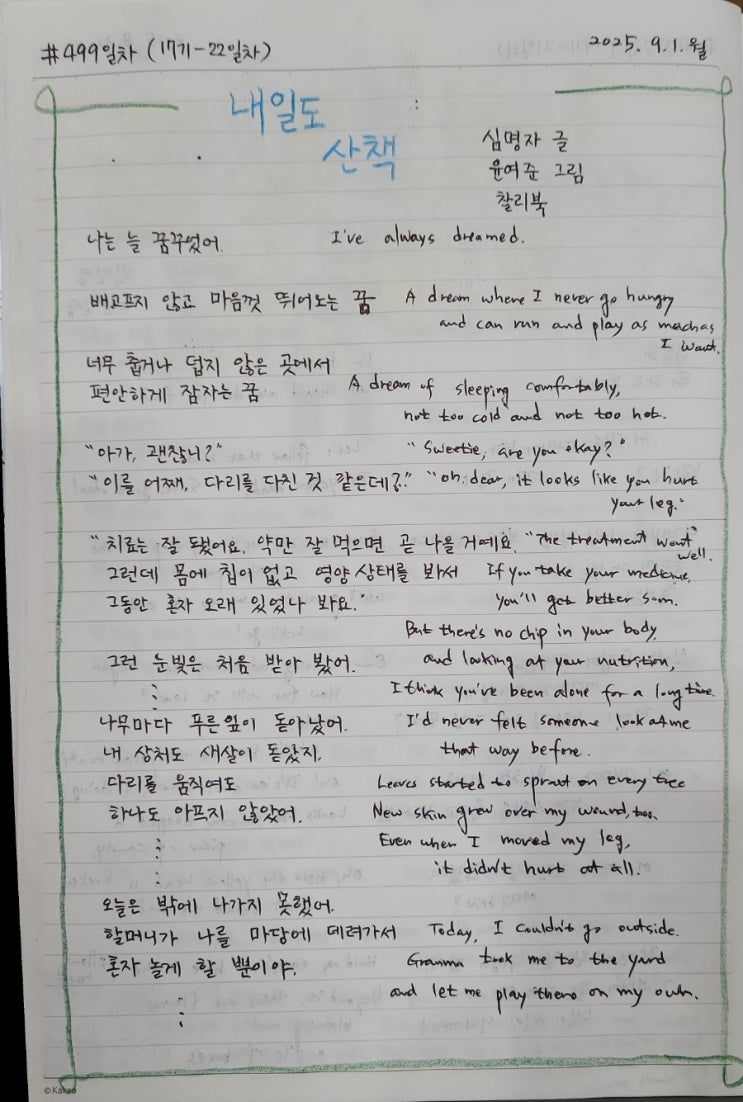 #499일차 (17기-22일차)
2025. 9. 1. 월
내일도
산책
심명자 글
윤여준 그림
찰리북
나는 늘 꿈꾸었어.
I've always dreamed.
배고프지 않고 마음껏 뛰어노는 꿈
A dream where I never go hungry
and can run and play as much as
I want.
너무 춥거나 덥지 않은 곳에서
편안하게 잠자는 꿈
A dream of sleeping comfortably,
not too cold and not too hot.
"아가, 괜찮니?"
"Sweetie, are you okay?"
"이를 어째, 다리를 다친 것 같은데?"
"oh, dear, it looks like you hurt
your leg."
"치료는 잘 됐어요. 약만 잘 먹으면 곧 나을 거예요.
그런데 몸에 칩이 없고 영양 상태를 봐서
그동안 혼자 오래 있었나 봐요."
"The treatment went
well.
If you take your medicine,
you'll get better soon.
But there's no chip in your body,
and looking at your nutrition,
I think you've been alone for a long time.
그런 눈빛은 처음 받아 봤어.
I'd never felt someone look at me
that way before.
나무마다 푸른 잎이 돋아났어.
내 상처도 새살이 돋았지.
다리를 움직여도
하나도 아프지 않았어.
Leaves started to sprout on every tree
New skin grew over my wound, too.
Even when I moved my leg,
it didn't hurt at all.
오늘은 밖에 나가지 못했어.
할머니가 나를 마당에 데려가서
혼자 놀게 할 뿐이야.
Today, I couldn't go outside.
Granma took me to the yard
and let me play there on my own.
©Kakao